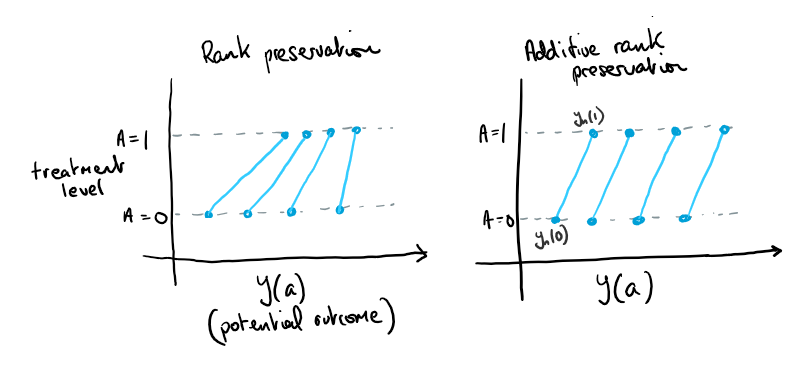 Rank preservation
A=1
treatment
level
A=0
y(a)
(potential outcome)
Additive rank
preservation
yₙ(1)
A=1
A=0
yₙ(0)
y(a)